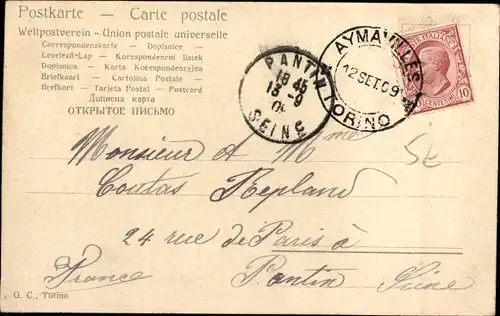 Postkarte — Carte postale
Weltpostverein - Union postale universelle
Correspondenzkarte - Dopisnice -
Levelező-Lap - Korespondencni listek
Dopisnica - Karta Korespondencyjna
Briefkaart - Cartolina Postale -
Brefkort - Tarjeta Postal - Postcard
Дописна карта
ОТКРЫТОЕ ПИСЬМО
PANTIN
18 45
13 - 9
SEINE
AYMAVILLES
12 SET. 09
TORINO
10
Monsieur et Mme
Coutas Repland
24 rue de Paris à
France Pantin Seine
G. C., Torino